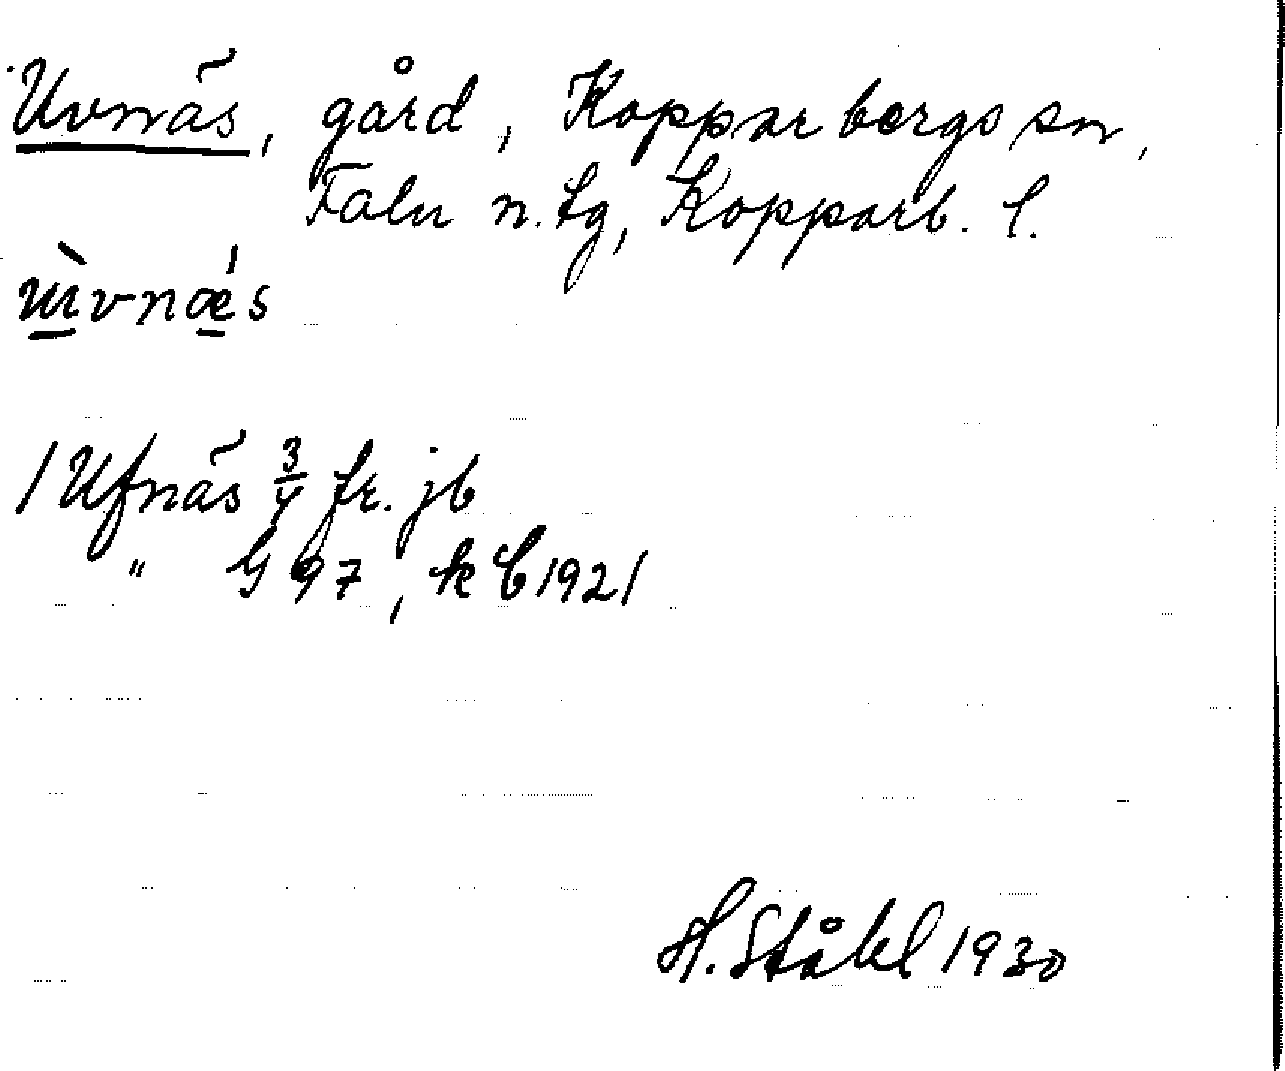 Uvnäs, gård, Kopparbergs sn,
Falu n. tg, Kopparb. l.
ɯ̀vnǽs
1 Ufnäs 3/4 fr. jb
" G 97, kb 1921
H. Ståhl 1930